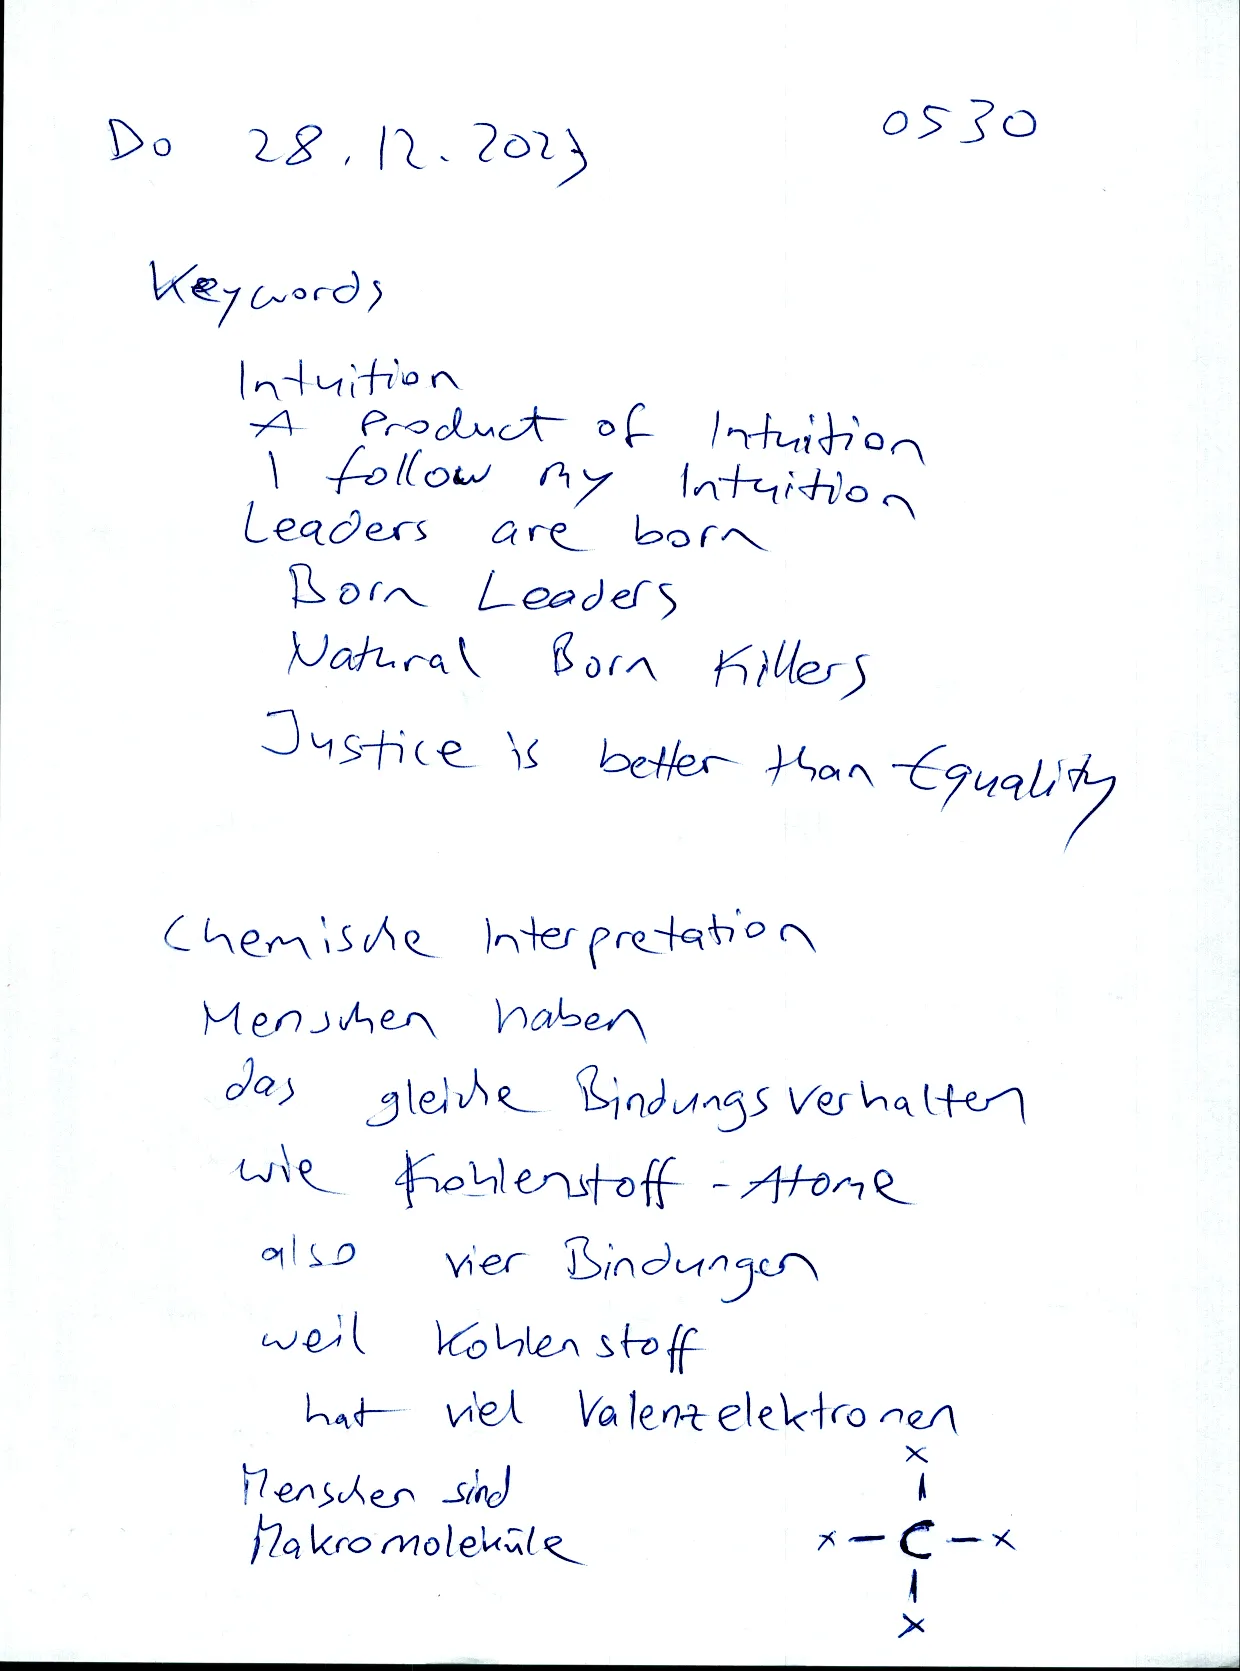 Do 28.12.2023 0530
Keywords
Intuition
A Product of Intuition
I follow my Intuition
Leaders are born
Born Leaders
Natural Born Killers
Justice is better than Equality
Chemische Interpretation
Menschen haben
das gleiche Bindungsverhalten
wie Kohlenstoff-Atome
also vier Bindungen
weil Kohlenstoff
hat viel Valenzelektronen
Menschen sind
Makromoleküle
x
|
x – C – x
|
x